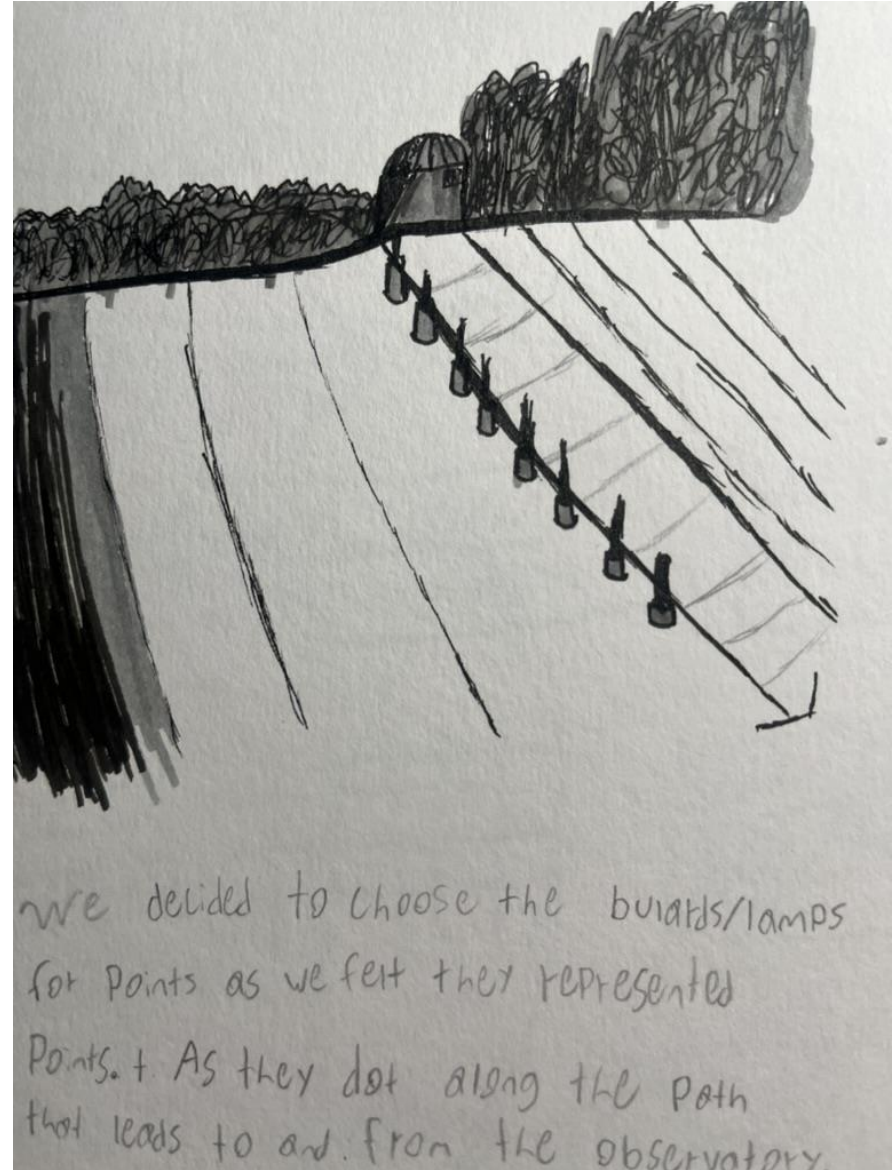 We decided to choose the bulards/lamps
for points as we felt they represented
Points. t. As they dot along the path
that leads to and from the observatory